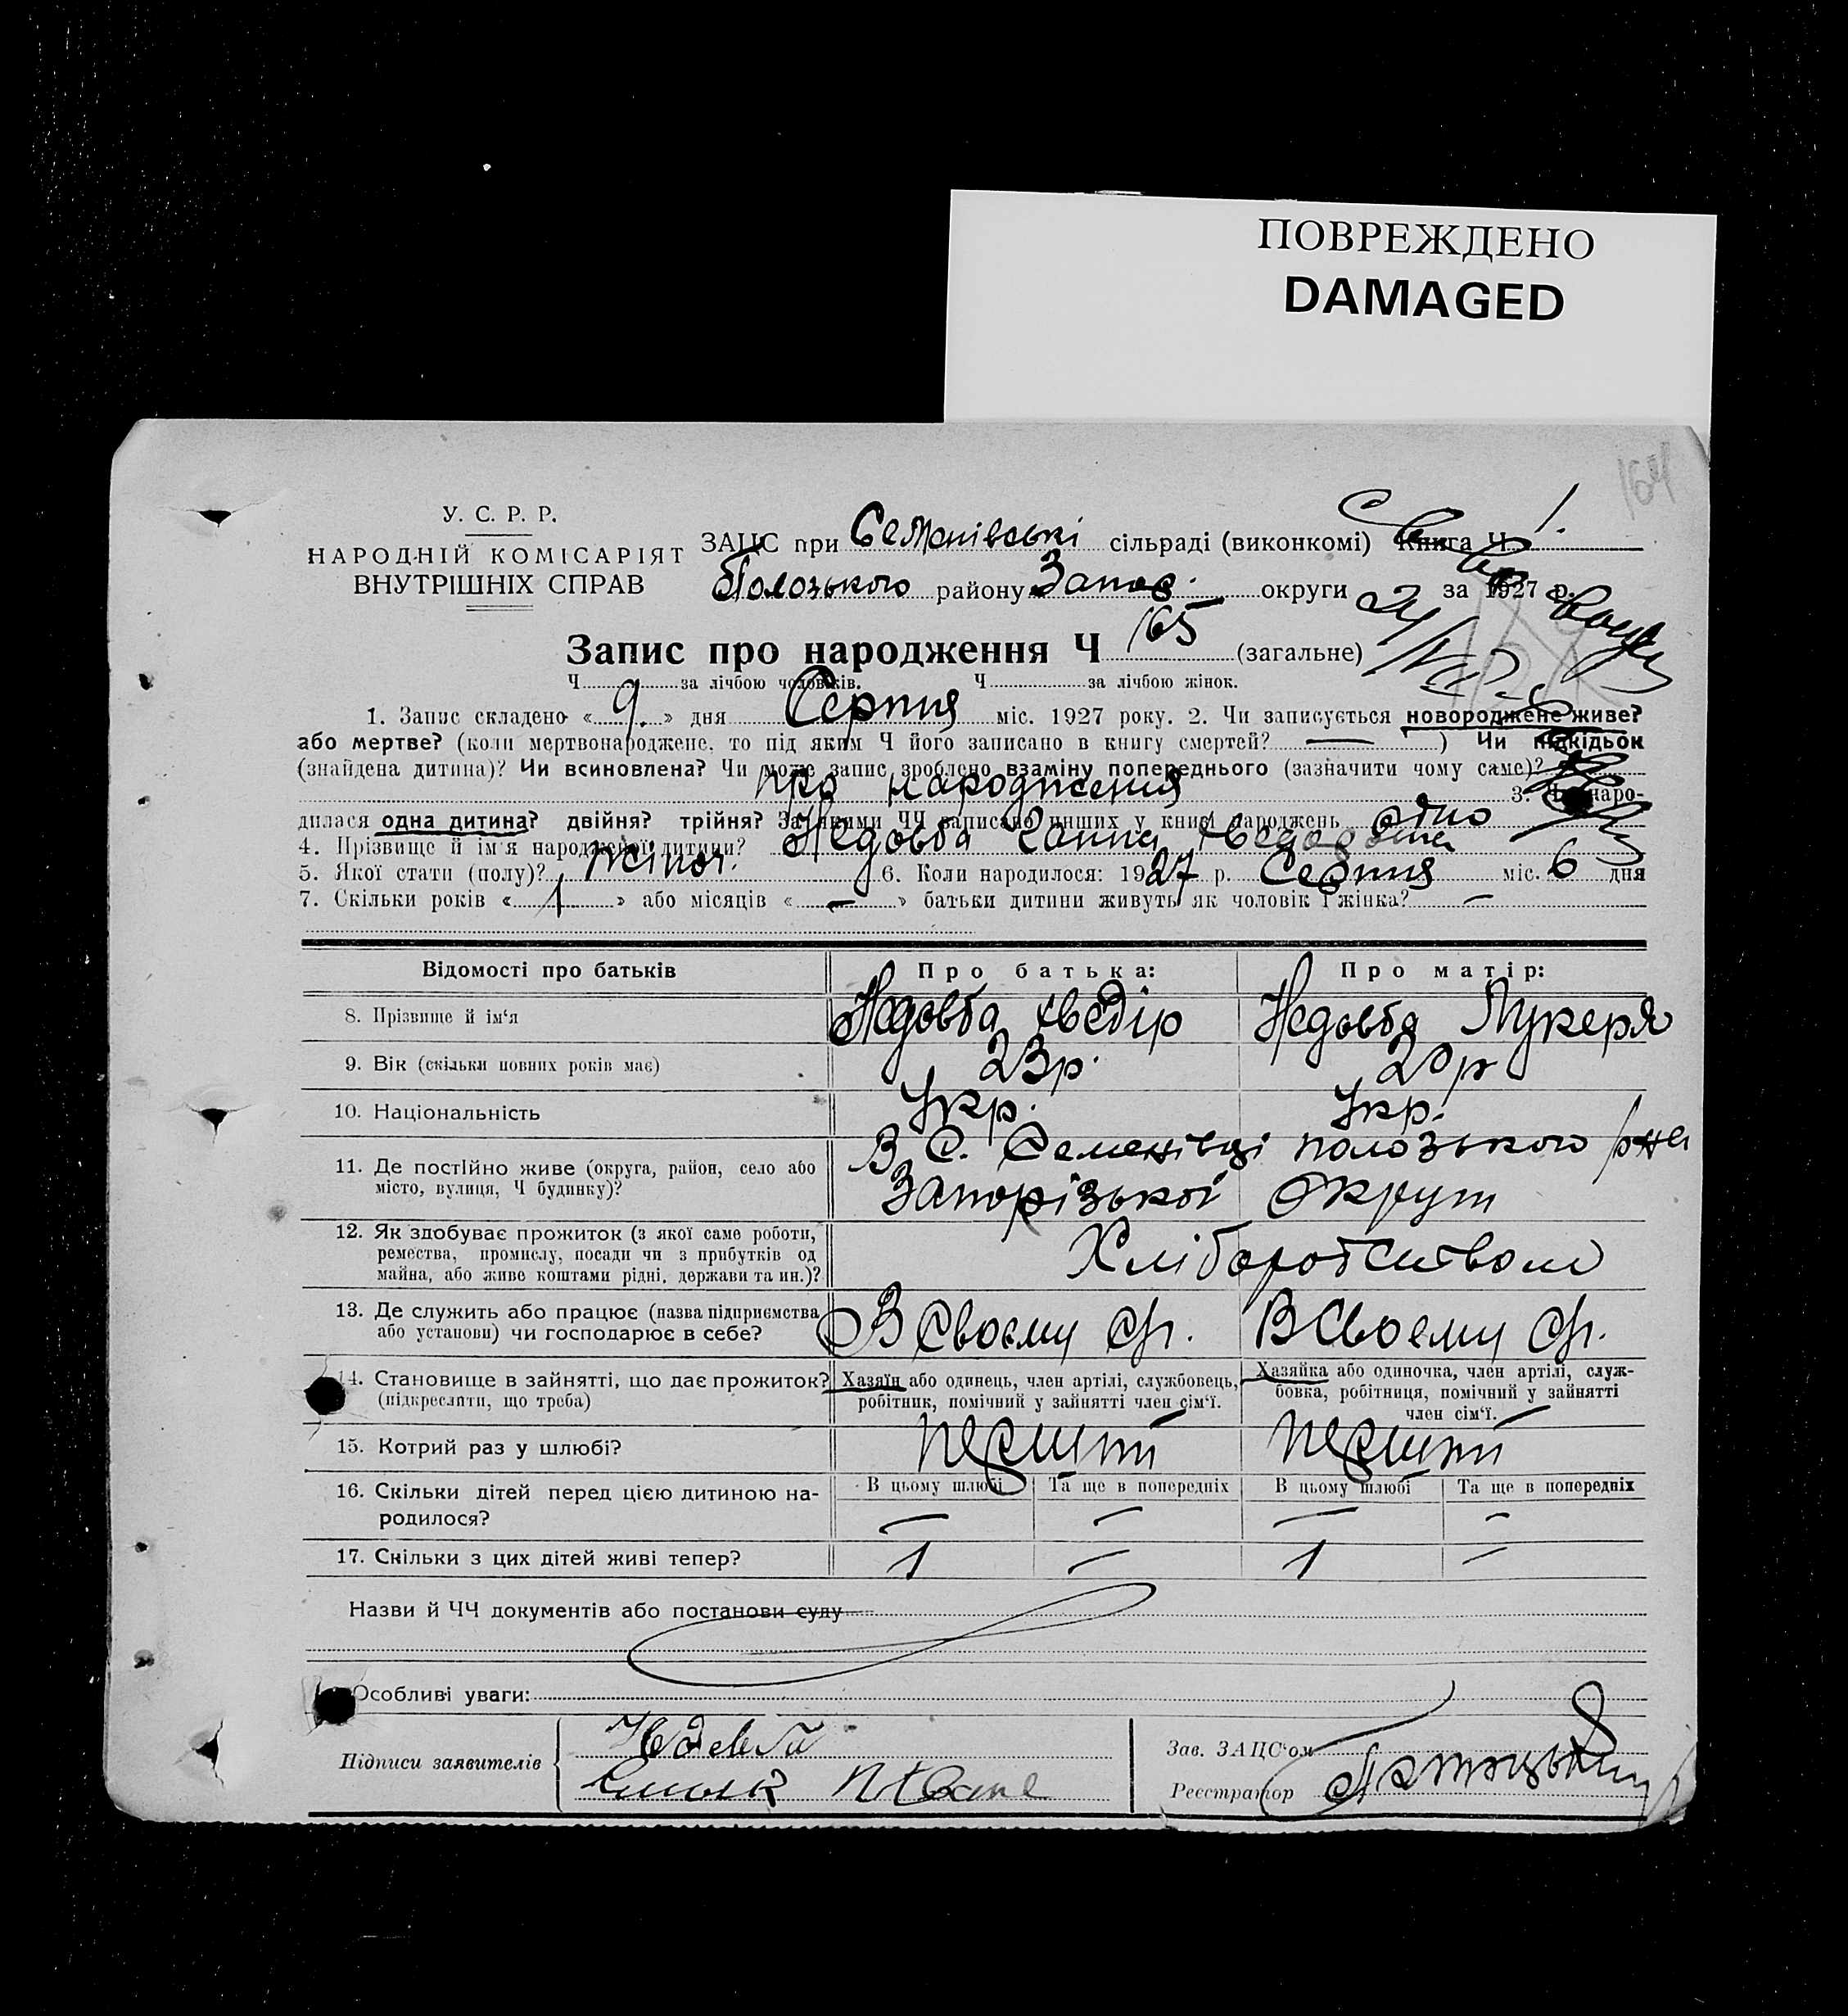 ПОВРЕЖДЕНО
DAMAGED
164
У. С. Р. Р.
НАРОДНІЙ КОМІСАРІЯТ
ВНУТРІШНІХ СПРАВ
ЗАЦС при Семенівські сільраді (виконкомі) Книга Ч. 1.
Полозького району Запор. округи за 1927 р.
Запис про народження Ч 165 (загальне)
Ч за лічбою чоловіків. Ч за лічбою жінок.
1. Запис складено «9.» дня Серпня міс. 1927 року. 2. Чи записується новороджене живе?
або мертве? (коли мертвонароджене, то під яким Ч його записано в книгу смертей? — ) Чи підкідьок
(знайдена дитина)? Чи всиновлена? Чи може запис зроблено взаміну попереднього (зазначити чому саме)?
про народження 3. Чи наро-
дилася одна дитина? двійня? трійня? За якими ЧЧ записано инших у книзі народжень одно
4. Прізвище й ім'я народженої дитини? Недовба Ганна
5. Якої стати (полу)? жіноч. 6. Коли народилося: 1927 р. Серпня міс. 6 дня
7. Скільки років «1» або місяців «—» батьки дитини живуть як чоловік і жінка? —
Відомості про батьків Про батька: Про матір:
8. Прізвище й ім'я Недовба Хведір Недовба Лукеря
9. Вік (скільки повних років має) 23 р. 20 р
10. Національність Укр. Укр.
11. Де постійно живе (округа, район, село або В с. Семенівці полозького р-на
місто, вулиця, Ч будинку)? Запорізької Округи
12. Як здобуває прожиток (з якої саме роботи,
ремества, промислу, посади чи з прибутків од Хліборобством
майна, або живе коштами рідні, держави та ин.)?
13. Де служить або працює (назва підприємства
або установи) чи господарює в себе? В Своєму г. В Своєму г.
14. Становище в зайнятті, що дає прожиток? Хазяїн або одинець, член артілі, службовець, Хазяйка або одиночка, член артілі, служ-
(підкреслити, що треба) робітник, помічний у зайнятті член сім'ї. бовка, робітниця, помічний у зайнятті
член сім'ї.
15. Котрий раз у шлюбі? перший перший
16. Скільки дітей перед цією дитиною на- В цьому шлюбі Та ще в попередніх В цьому шлюбі Та ще в попередніх
родилося? — — — —
17. Скільки з цих дітей живі тепер? 1 — 1 —
Назви й ЧЧ документів або постанови суду
Особливі уваги:
Підписи заявителів Недовба
Зав. ЗАЦС'ом
Реєстратор